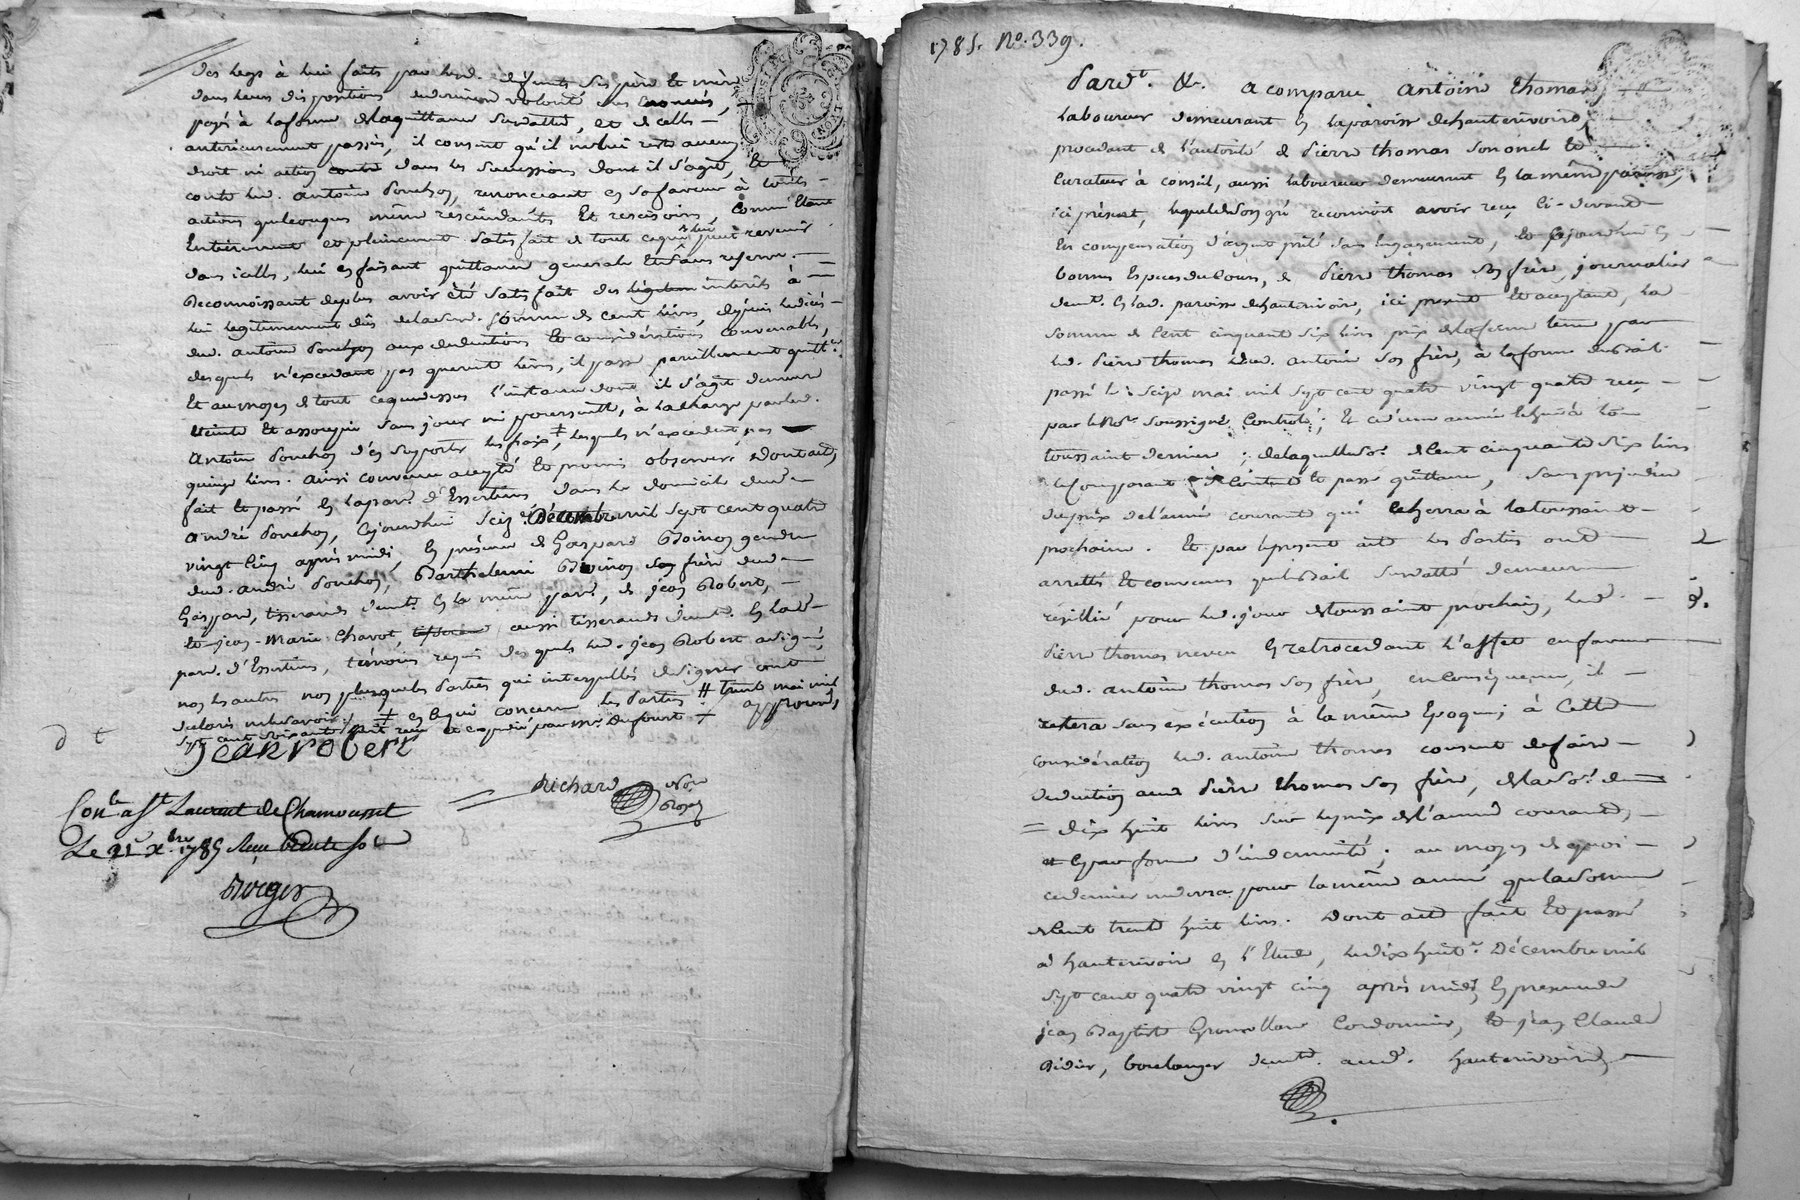 des legs à lui faits par lesd. défunts ses père et mère
dans leurs dispositions de dernière volonté sus énoncés,
payé à la forme de la quittance susdatte, et de celles
antérieurement passés, il consent qu'il ne lui reste aucun
droit ni action contre dans les successions dont il s'agit, et
contre led. antoine Ponchon, renonceant en sa faveur à touttes
actions quelconques même rescindants et rescisoirs, comme étant
entièrement et pleinement satisfait de tout ce qui peut revenir
dans icelles, lui en faisant quittance generale et sans reserve.
Reconnoissant de plus avoir été satisfait des intérêts à
lui legitimement dûs de lad. somme de cent livres, depuis le décès
dud. antoine Ponchon aux déductions et considérations convenables,
desquels n'excedant pas quarente livres, il passe pareillement quitt.ce
Et au moyen de tout ce que dessus l'instance dont il s'agit demeure
éteinte et assoupie sans y être ni poursuitte, à la charge par led.
Antoine Ponchon d'en supporter les frais, lesquels n'excedent pas
quinze livres. ainsi convenu accepté et promis observer. Dont acte,
fait et passé en la par. d'Essertines, dans le domicile dud.
andré Ponchon, cejourdhui seize Décembre mil sept cent quatre
vingt cinq après midi, en présence de Gaspard Boinon gendre
dud. andré Ponchon, Barthelemi Boinon son frère dud.
Gaspard, tisserands demt. en la même par., de jean Robert,
et jean-Marie Chavot, aussi tisserands demt. en lad.
par. d'Essertines, témoins requis desquels led. jean Robert a signé,
non les autres non plus que les Parties qui interpellés de signer ont
declaré ne le savoir ‡ en ce qui concerne les Parties # trente mai mil
sept cent soixante huit reçu et expédié par Mr. Dufournt + approuvé
Jean robert
Richard Nore Royal
Con.lé a St. Laurent de Chamousset
Le 21 Xbre 1785 Reçu trente sols
Borger
1785. No. 339.
Pardt. &. a comparu Antoine Thomas
laboureur demeurant en la paroisse de hauterivoire,
procedant de l'autorité de Pierre thomas son oncle et
curateur à conseil, aussi laboureur demeurant en la même paroisse,
ici présent, lequel de son gré reconnoit avoir reçu ci-devant
en compensation d'argent prêté sans engagement, et cejourdhui en
bonnes espèces de cours, de Pierre thomas son frère, journalier
demt. en lad. paroisse de hauterivoire, ici present et aceptant, la
somme de cent cinquante six livres prix de la ferme tenue par
led. Pierre thomas dud. antoine son frère, à la forme du Bail
passé le seize mai mil sept cent quatre vingt quatre reçu
par le Nore. soussigné, Controlé; Et ce d'une année échue à la
toussaint dernier; de laquelle so. de cent cinquante six livres
le Comparant se contente et passe quittance, sans prejudice
du prix de l'année courante qui echerra à la toussaint
prochaine. Et par le present acte les Parties ont
arrettés et convenus que le Bail susdatté demeure
résillié pour led. jour de toussaint prochain, led.
Pierre thomas en retrocedant l'effet en faveur
dud. antoine thomas son frère, en conséquence, il
restera sans exécution à la même Epoque; à cette
considération led. antoine thomas consent de faire
deduction aud Pierre thomas son frère, de la so. de
dix huit livres sur le prix de l'année courante,
et ce par forme d'indemnité; au moyen de quoi
ce dernier ne devra pour la même année que la somme
de cent trente huit livres. Dont acte fait et passé
à hauterivoire en l'Etude, le dix huit. Décembre mil
sept cent quatre vingt cinq après midi, en presence de
jean Baptiste Grousellane Cordonnier, et jean Claude
Didier, boulanger demt. aud. hauterivoire